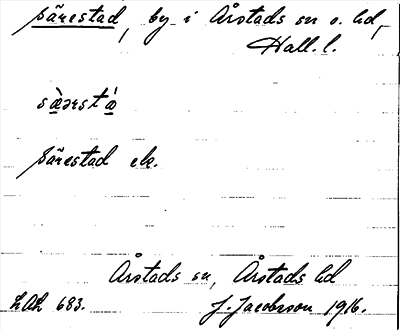 Särestad, by i Årstads sn o. hd,
Hall. l.
sàərstá
Särestad ek.
Årstads sn, Årstads hd
LAL 683. J. Jacobsson 1916.